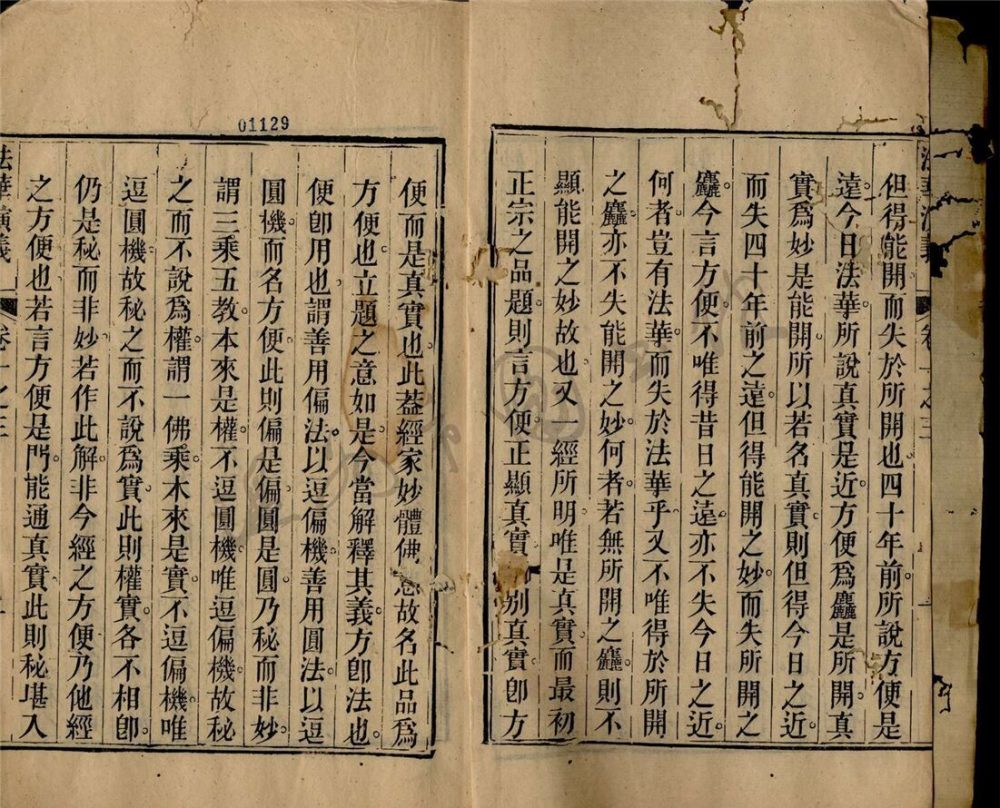 但得能開而失於所開也四十年前所說方便是
遠今日法華所說真實是近方便爲麤是所開真
實爲妙是能開所以若名真實則但得今日之近
而失四十年前之遠但得能開之妙而失所開之
麤今言方便不唯得昔日之遠亦不失今日之近
何者豈有法華而失於法華乎又不唯得於所開
之麤亦不失能開之妙何者若無所開之麤則不
顯能開之妙故也又一經所明唯是真實而最初
正宗之品題則言方便正顯真實 別真實卽方
01129
便而是真實也此葢經家妙體佛 故名此品爲
方便也立題之意如是今當解釋其義方卽法也
便卽用也謂善用偏法以逗偏機善用圓法以逗
圓機而名方便此則偏是偏圓是圓乃秘而非妙
謂三乘五教本來是權不逗圓機唯逗偏機故秘
之而不說爲權謂一佛乘木來是實不逗偏機唯
逗圓機故秘之而不說爲實此則權實各不相卽
仍是秘而非妙若作此解非今經之方便乃他經
之方便也若言方便是門能通真實此則秘堪入
法華演義 卷一之三